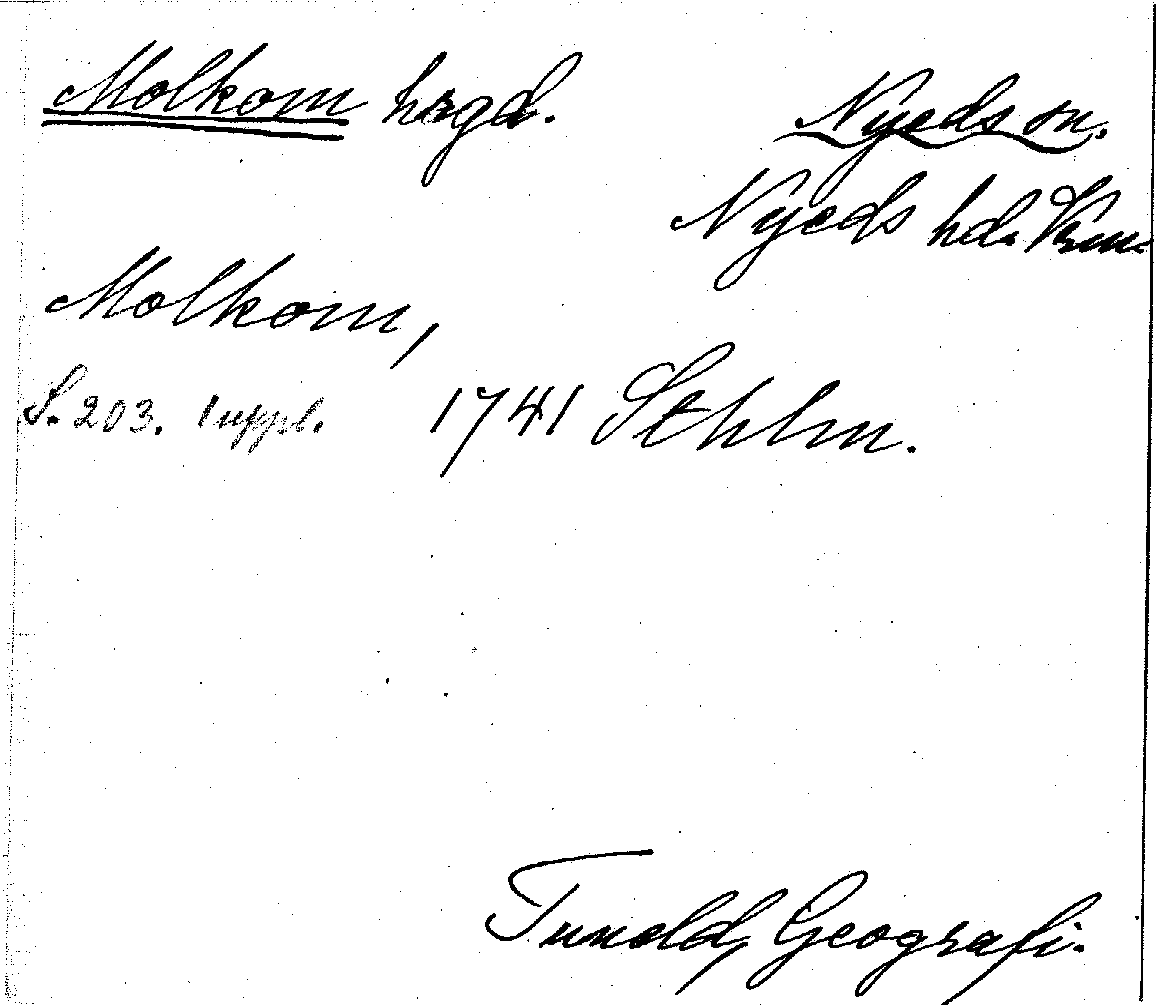 Molkom hrgd.
Nyeds sn.
Nyeds hd. Vrm.
Molkom,
S. 203. suppl. 1741 Sthlm.
Tuneld, Geografi.